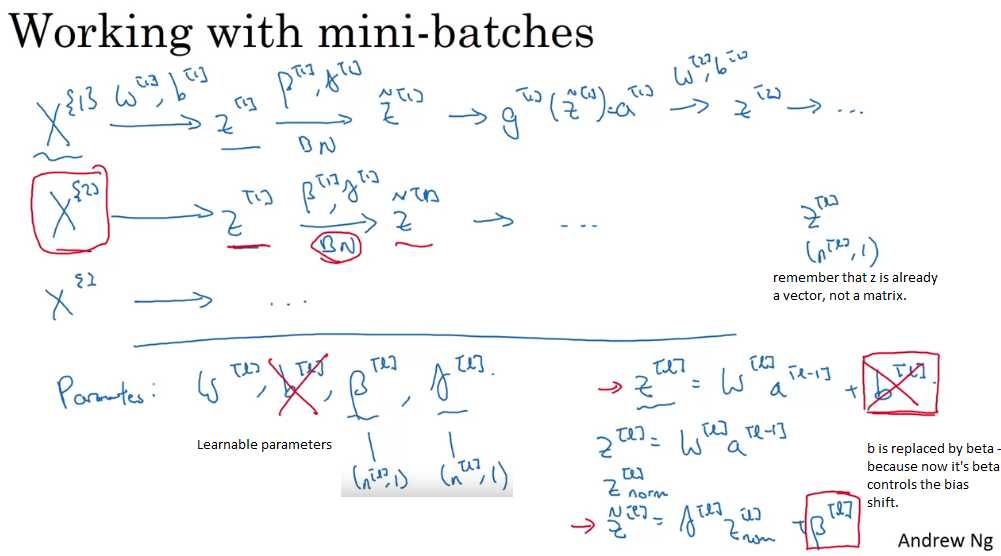 Working with mini-batches
X^{1} W^[1], b^[1] → z^[1] β^[1], γ^[1] → BN z̃^[1] → g^[1](z̃^[1]) = a^[1] W^[2], b^[2] → z^[2] → ...
X^{2} → z^[1] β^[1], γ^[1] → BN z̃^[1] → ...
z^[l]
(n^[l], 1)
remember that z is already
a vector, not a matrix.
X^{} → ...
Parameters: W^[l], b^[l], β^[l], γ^[l].
Learnable parameters
(n^[l], 1) (n^[l], 1)
→ z^[l] = W^[l] a^[l-1] + b^[l].
z^[l] = W^[l] a^[l-1]
z^[l] norm
→ z̃^[l] = γ^[l] z^[l] norm + β^[l]
b is replaced by beta -
because now it's beta
controls the bias
shift.
Andrew Ng